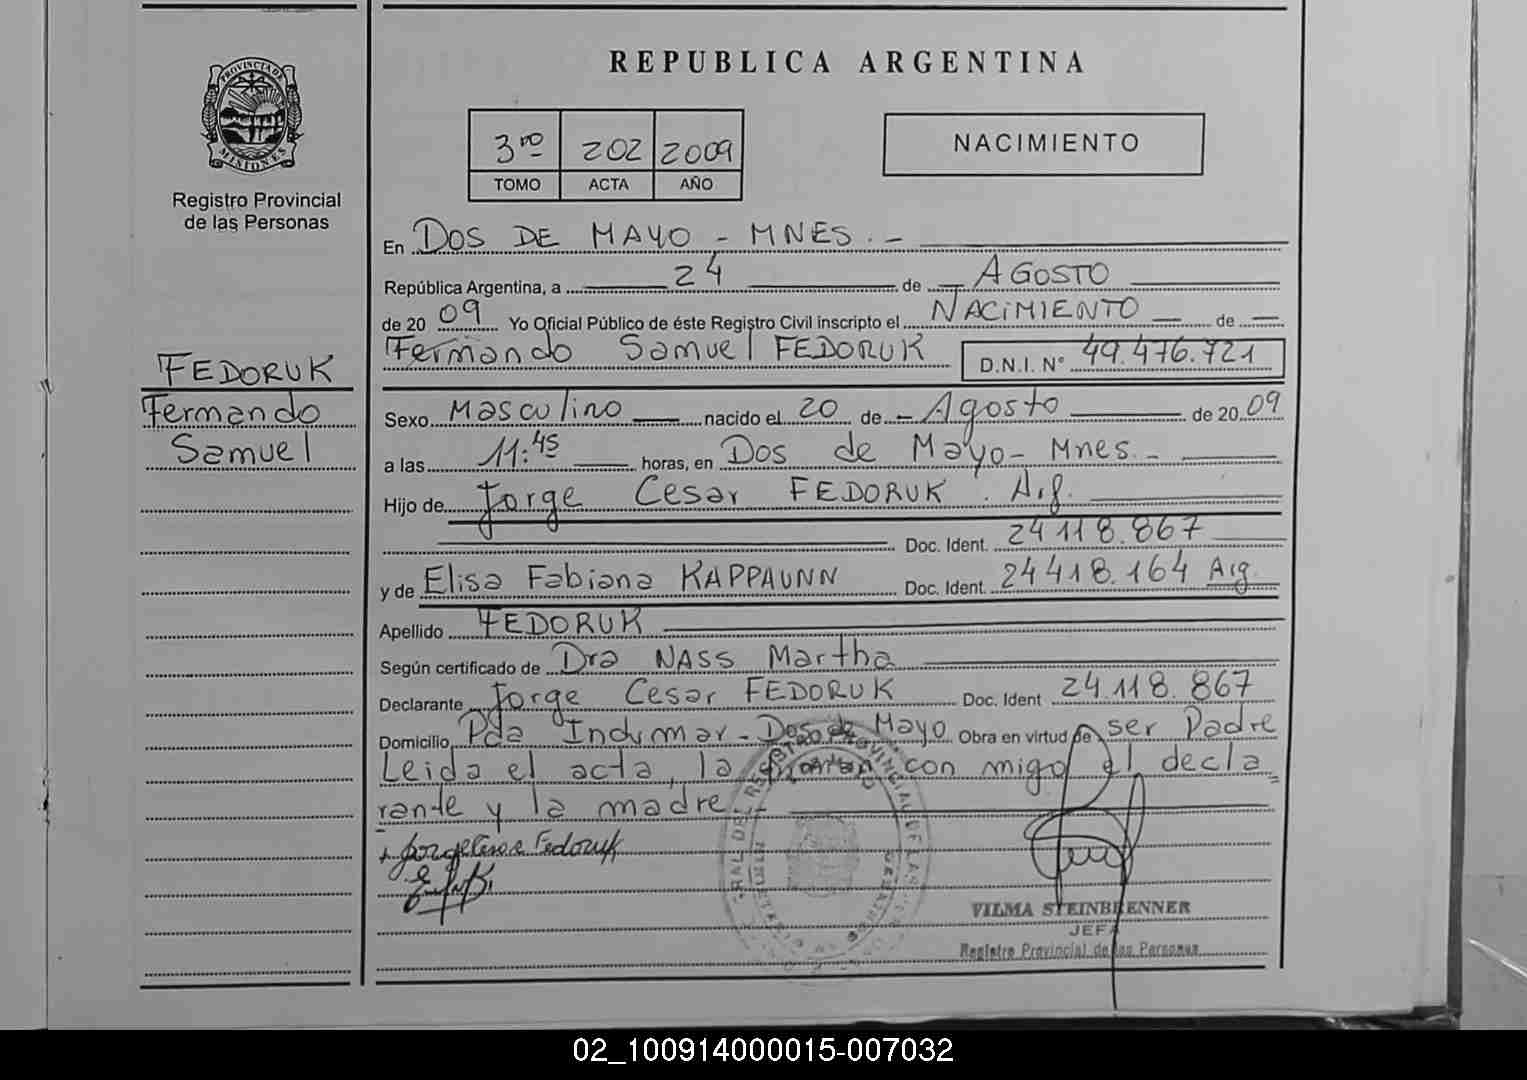 PROVINCIA DE
MISIONES
Registro Provincial
de las Personas
FEDORUK
Fernando
Samuel
REPUBLICA ARGENTINA
3ro 202 2009
TOMO ACTA AÑO
NACIMIENTO
En DOS DE MAYO - MNES. -
República Argentina, a 24 de AGOSTO
de 20 09 Yo Oficial Público de éste Registro Civil inscripto el NACIMIENTO — de —
Fernando Samuel FEDORUK D.N.I. N° 49.476.721
Sexo Masculino nacido el 20 de - Agosto de 20 09
a las 11:45 horas, en Dos de Mayo - Mnes. -
Hijo de Jorge Cesar FEDORUK . Arg.
Doc. Ident. 24 118.867
y de Elisa Fabiana KAPPAUNN Doc. Ident. 24 418.164 Arg.
Apellido FEDORUK
Según certificado de Dra NASS Martha
Declarante Jorge Cesar FEDORUK Doc. Ident 24.118.867
Domicilio Pda Indumar - Dos de Mayo Obra en virtud de ser Padre
Leida el acta, la firman con migo el decla=
rante y la madre
Jorge Cesar Fedoruk
VILMA STEINBRENNER
JEFA
Registro Provincial de las Personas
02_100914000015-007032